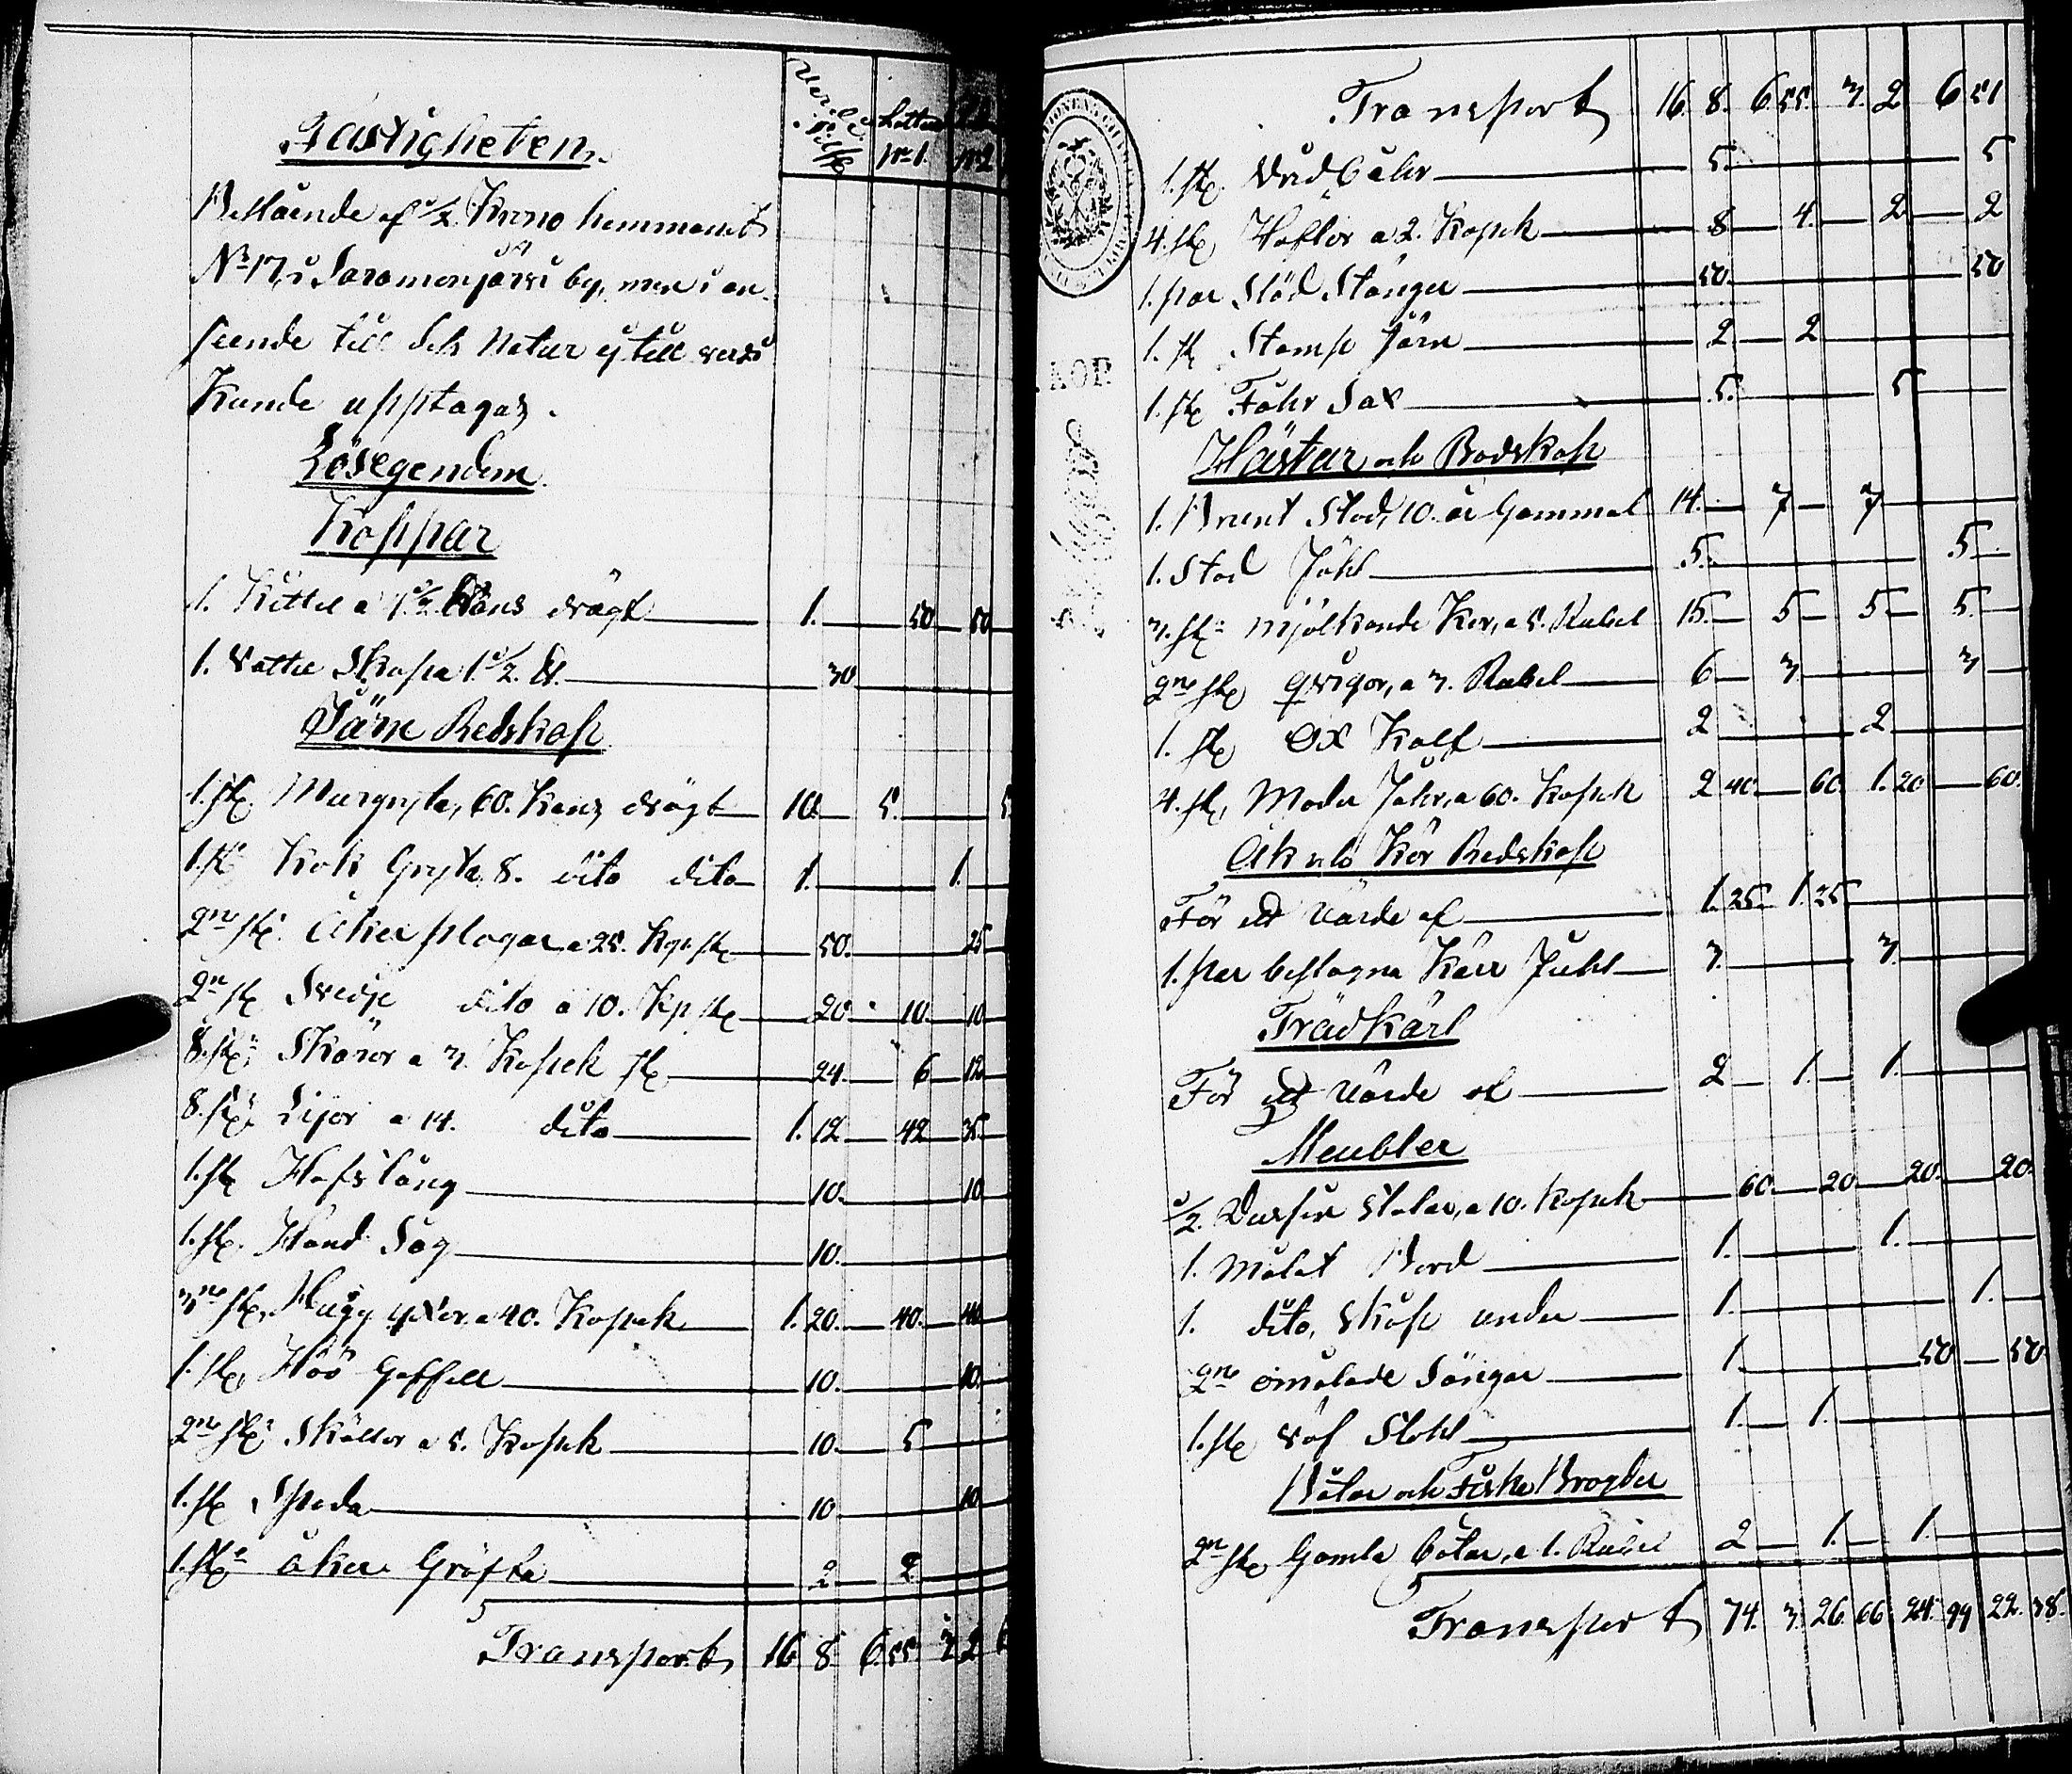 Fastigheten.
Bestående af 1/2 Krono hemmanet
No 17, i Saramonjärvi by, men i an-
seende till dels Natur ej till värde
Kunde upptagas.
Lösegendom
Koppar
1. Kittel a 1 1/2 Kans drägt 1. 50 50
1. Vattu Skopa 1 1/2 lb. 30
Järn Redskap
1. st. Murgryta, 60. Kans drägt 10. 5. 5
1. st. Kok Gryta 8. dito dito 1. 1.
2ne st. Åker plogar a 25. Kop st 50. 25
2ne st. Svedje dito a 10. Kop st 20. 10. 10
8. st. Skäror a 3. Kopek st 24. 6 12
8. st. Lijor a 14. dito 1. 12 42 35
1. st. Hofstång 10. 10
1. st. Hand Såg 10.
3ne st. Hugg yxor a 40. Kopek 1. 20. 40. 40
1. st. Höö Gaffell 10. 10.
2ne st. Skällor a 5. Kopek 10. 5
1. st. Spada 10 10
1. st. åker Gräfta 2 2
Transport 16 8 6. 55. 3 2 6
Lotten
No 1. No 2
Transport 16. 8. 6 55. 3. 2 6 51
1. st. 5. 5
4. st. Haflor a 2. Kopek 8 4. 2 2
1. par Slåd Stänger 50. 50
1. st Stamp Järn 2 2
1. st. Fåhr Sax 5. 5
Hästar och Bodskap
1. Brunt Stod, 10. år Gammal 14. 7 7
1. Stod Föhl 5. 5
3. st. Mjölkande Kor, a 5. Rubel 15. 5 5 5
2ne st. qvigor, a 3. Rubel 6 3 3
1. st. Ox Kalf 2 2
4. st. Moder Fåhr, a 60. Kopek 2 40. 60. 1. 20 60.
Åk och Kör Redskap
För ett värde af 1. 25. 1. 25
1. par beslagna Kärr Juhl 3. 3.
Trädkärl
För ett värde af 2 1. 1.
Meubler
1/2. Dussin stolar, a 10. Kopek 60. 20 20. 20.
1. Målat Bord 1. 1.
1. dito, skåp under 1. 1.
2ne omålade Sängar 1 50 50
1. st. Väf Stohl 1. 1.
Båtar och Fiske Bragder
2ne st. Gamla båtar, a 1. Rubel 2 1. 1.
Transport 74. 3. 26. 66 24. 99 22. 38.